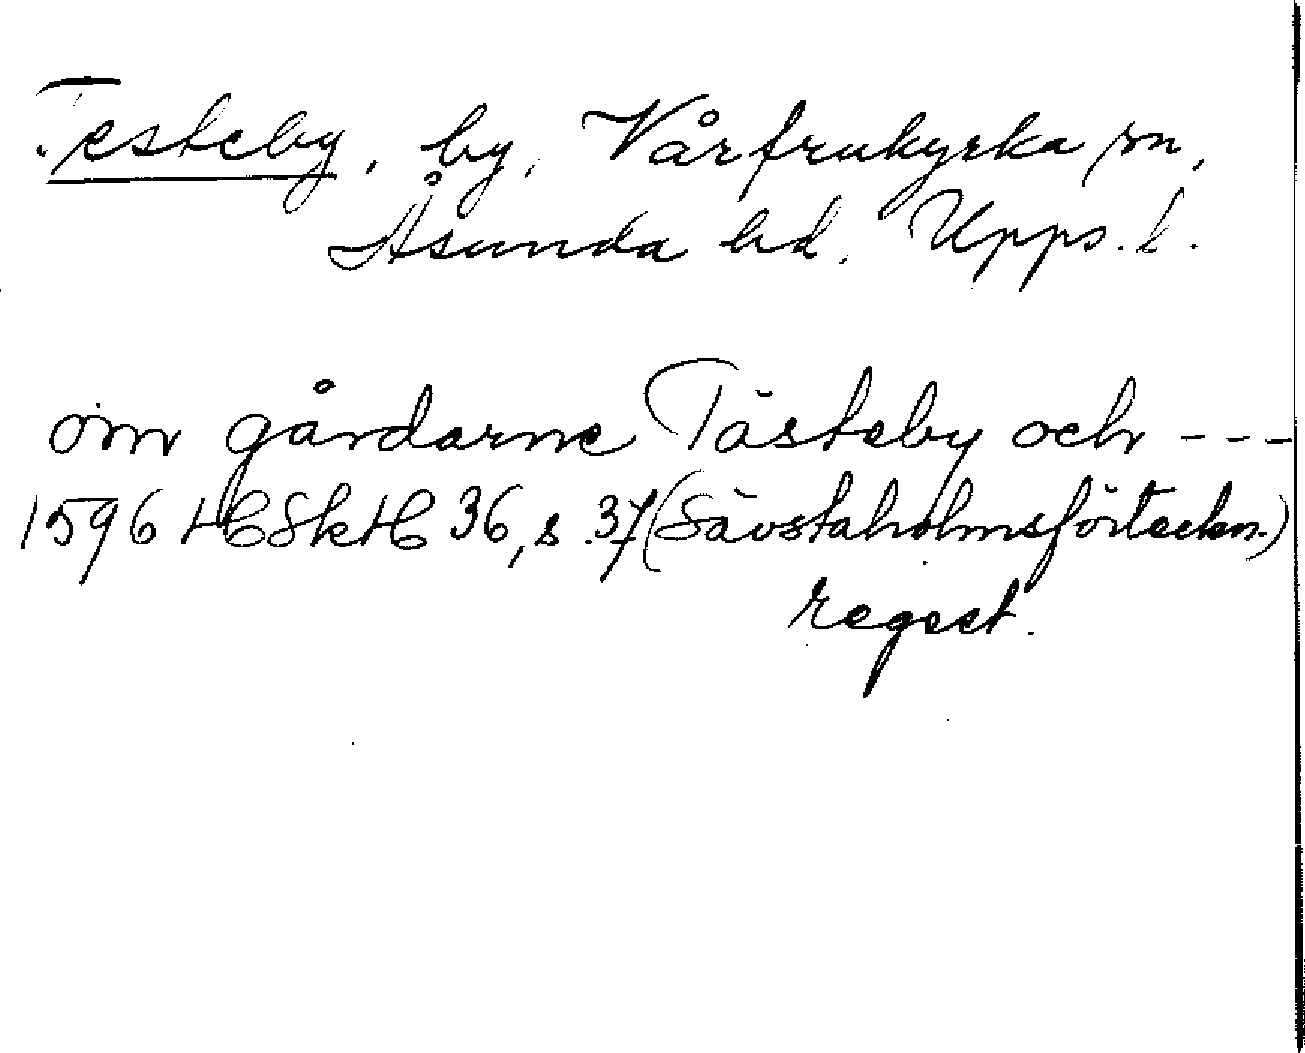 Testeby, by, Vårfrukyrka sn,
Åsunda hd, Upps. l.
om gårdarne Tästeby och ---
1596 HSkH 36, s. 37 (Sävstaholmsförteckn.)
regest.